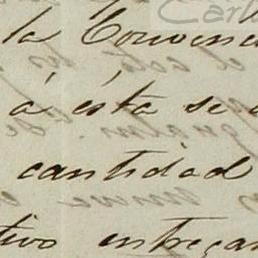 Carl
la Convenc
á ésta se
cantidad
tivo entregar